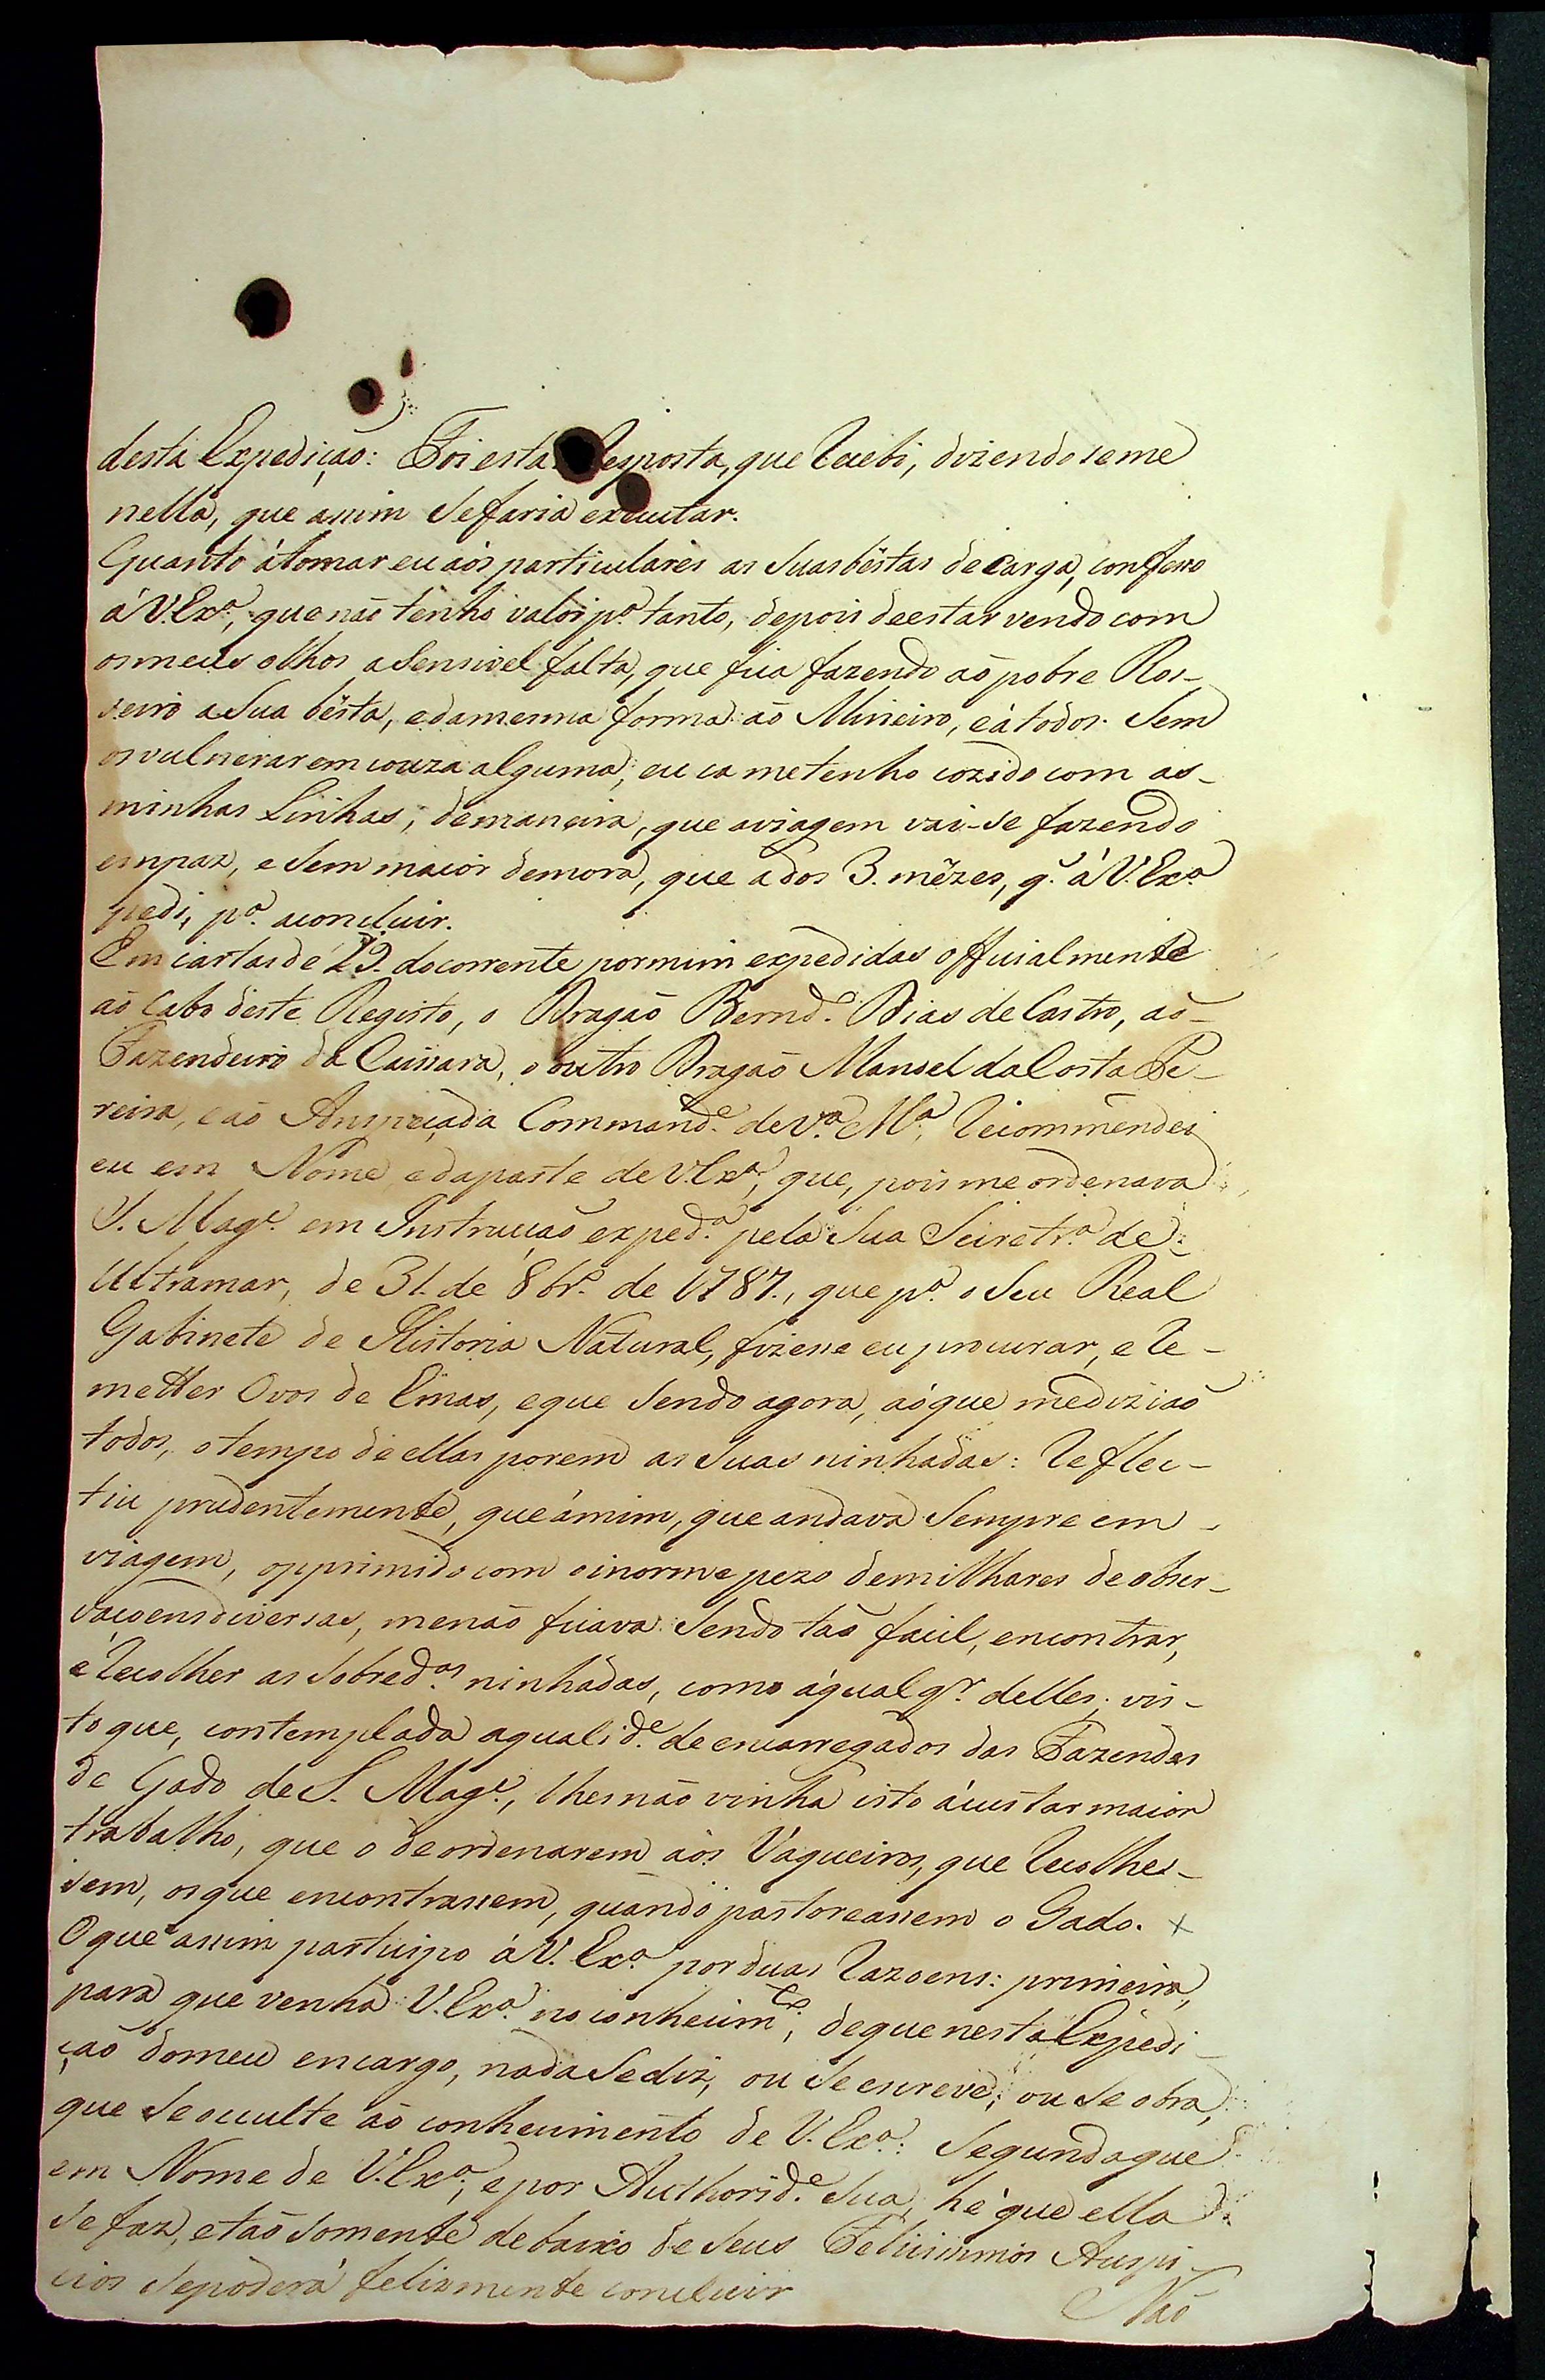 desta Expedição: Foi esta a Resposta, que Recebi, dizendo se me
nella, que assim Se faria executar.
Quanto á tomar eu aòs particulares as Suas bêstas de Carga, confesso
á V.Exª., que não tenho valor pª. tanto, depois de estar vendo com
os meus olhos a Sensivel falta, que fica fazendo aò pobre Ros-
seiro a Sua bêsta, e da mesma forma aò Mineiro, e á todos. Sem
os vulnerar em couza alguma; eu cá me tenho cozido com as-
minhas Linhas; de maneira, que a viagem vai-se fazendo
em paz, e Sem maior demora, que a dos 3. mêzes, q̃. á V. Exª
pedi, pª. a concluir.
Em cartas de 29. do corrente por mim expedidas officialmente
aò Cabo deste Registo, o Dragaõ Bernd.º Dias de Castro, aò-
Fazendeiro da Caissara, o outro Dragaõ Manoel da Costa Pe-
reira, e aò Anspeçada Command.e de Vª. Mª., Recommendei
eu em Nome e da parte de V.Exª., que, pois me ordenava
S. Mag.e em Instrucçaõ exped.ª pela Sua Secretr.ª de
Ultramar, de 31. de 8br.º de 1787., que pª. o Seu Real
Gabinete de Historia Natural, fizesse eu procurar, e Re-
metter Ovos de Emas, e que Sendo agora, aò que me diziaõ
todos, o tempo de ellas porem as Suas ninhadas: Reflec-
tiu prudentemente, que á mim, que andava Sempre em
viagem, opprimido com o inorme pezo de milhares de obser-
vaçoens diversas, me naõ ficava Sendo taõ facil, encontrar,
e Recolher as Sobred.as ninhadas, como á qual q.r delles; vis-
to que, contemplada a qualid.e de encarregados das Fazendas
de Gado de S. Mag.e, lhes naõ vinha isto á custar maior
trabalho, que o de ordenarem aòs Vaqueiros, que Recolhes-
sem, os que encontrassem, quando pastoreassem o Gado. x
O que assim participo á V. Exª. por duas Razoens: primeira,
para que venha V.Exª. no conhecim.to, de que nesta Expedi-
çaõ do meu encargo, nada Se diz, ou Se escreve, ou Se obra,
que Se occulte aò conhecimento de V. Exª.: Segunda que
em Nome de V.Exª., e por Authorid.e Sua, hé que ella
Se faz, e taõ Somente debaixo de Seus Felicissimos Auspi-
cios Se poderá felizmente concluir
Naõ